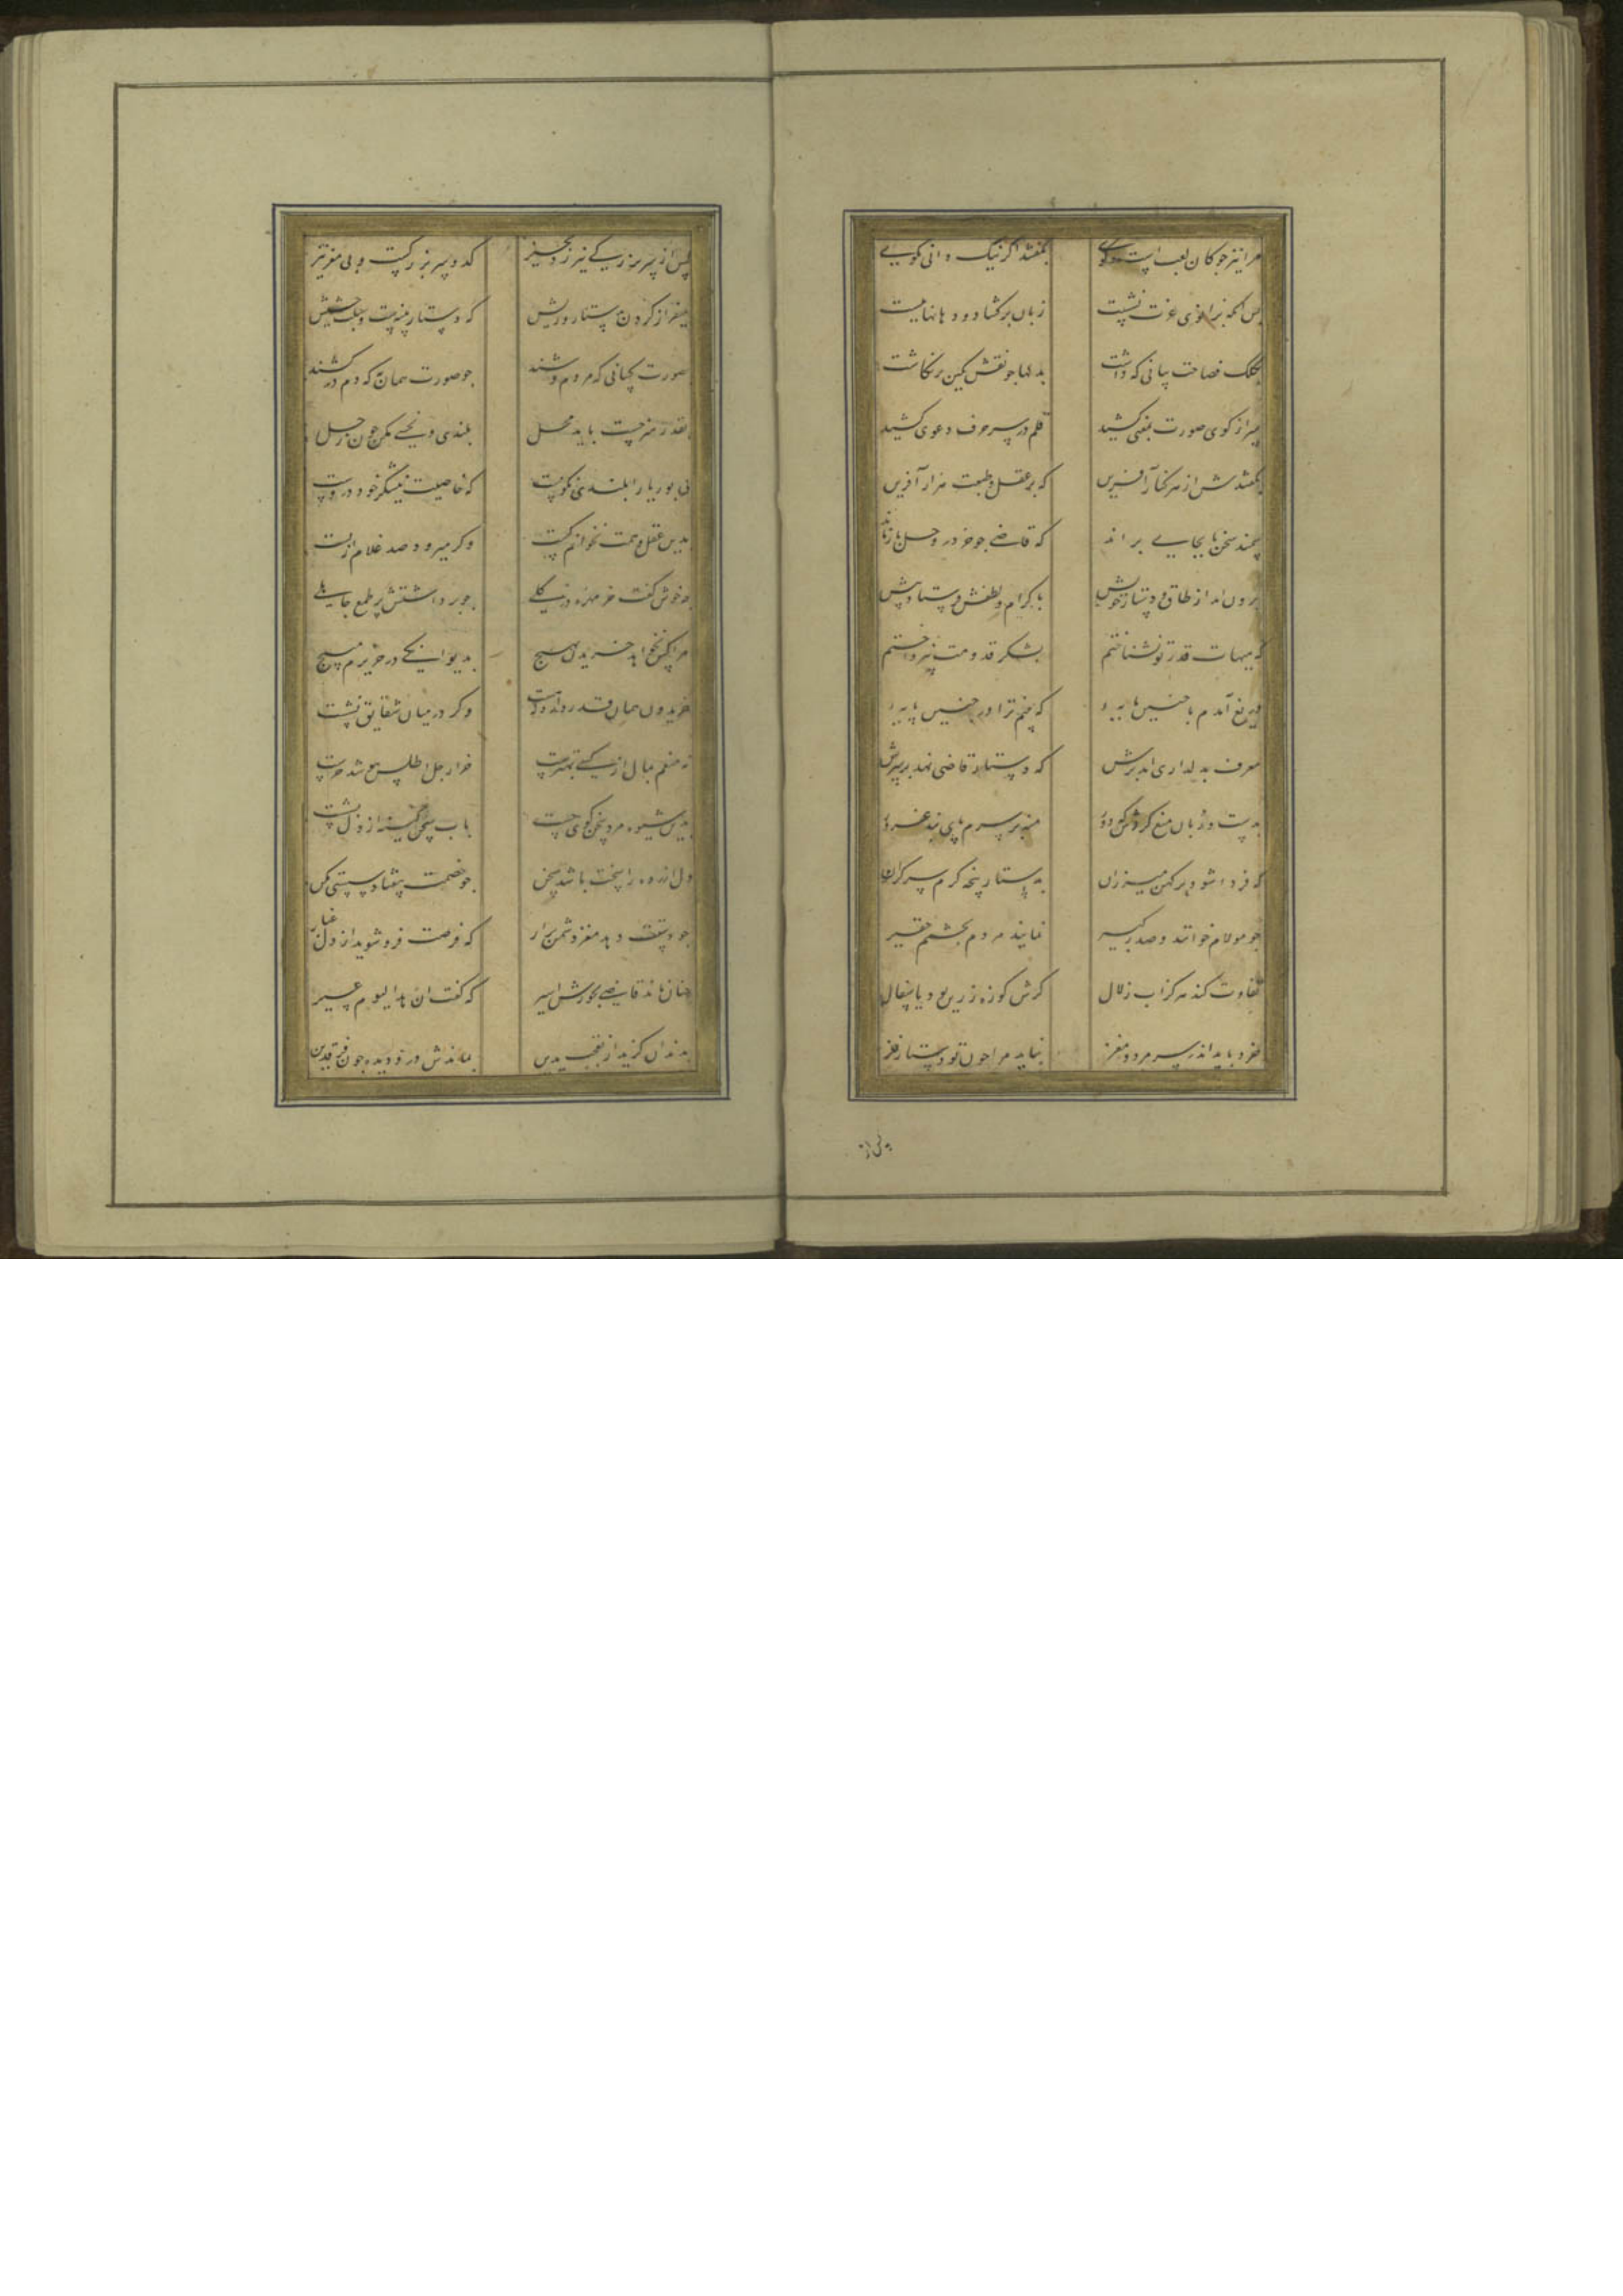 مرا نیز چوکان لعب است و کوی بگفتند اگر نیک دانی بگوی
پس آنکه بزانوی عزت نشست زبان برگشاد و دهانها ببست
بکلک فصاحت بیانی که داشت بدلها چو نقش نگین برنگاشت
سر از کوی صورت بمعنی کشید قلم در سر حرف دعوی کشید
بگفتندش از هر کنار آفرین که بر عقل و طبعت هزار آفرین
سمند سخن تا بجایی براند که قاضی چو خر در وحل باز ماند
برون آمد از طاق و دستار خویش باکرام و لطفش فرستاد پیش
که هیهات قدر تو نشناختم بشکر قدومت نپرداختم
دریغ آمدم با چنین مایه که بینم ترا در چنین پایه
معرف بدلداری آمد برش که دستار قاضی نهد بر سرش
بدست و زبان منع کردش که دور منه بر سرم پای بند غرور
که فردا شود بر کهن میزران بدستار پنجه گزم سر گران
چو مولام خوانند و صدر کبیر نمایند مردم بچشمم حقیر
تفاوت کند هرگز آب زلال گرش کوزه زرین بود یا سفال
خرد باید اندر سر مرد و مغز نباید مرا چون تو دستار نغز
پس از
کس از سر بزرگی نیرزد بچیز کدو سر بزرگست و بی مغز نیز
میفراز گردن بدستار و ریش که دستار پنبه است و سبلت حشیش
بصورت کسانی که مردم وشند چو صورت همان به که دم درکشند
بقدر هنر جست باید محل بلندی و نحسی مکن چون زحل
نی بوریا را بلندی نکوست که خاصیت نیشکر خود دروست
بدین عقل و همت نخوانم کست وگر میرود صد غلام از پست
چه خوش گفت خرمهره در کلی چو برداشتش پر طمع جاهلی
مرا کس نخواهد خریدن بهیچ بدیوانگی در حریرم مپیچ
وگر در میان شقایق نشست
نه منعم بمال از کسی بهترست خر ار جل اطلس بپوشد خرست
بدین شیوه مرد سخن گوی چست باب سخن کینه از دل بشست
دل آزرده را سخت باشد سخن چو خصمت بیفتاد سستی مکن
چو دستت دهد مغز دشمن برآر که فرصت فرو شوید از دل غبار
چنان ماند قاضی بجورش اسیر که گفت ان هذا لیوم عسیر
بدندان گزید از تعجب یدین بماندش درو دیده چون فرقدین